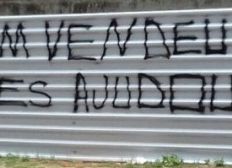 M VENDEU
ES AJUDOU